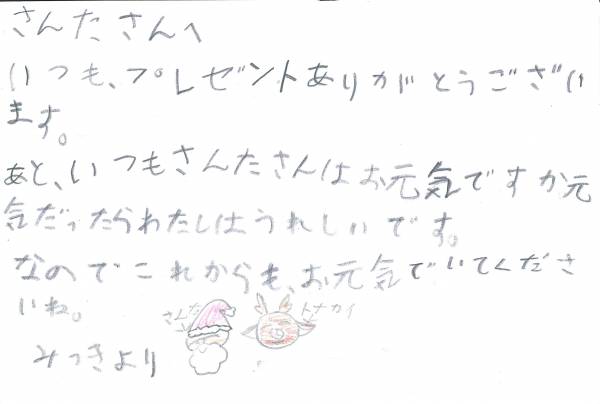 さんたさんへ
いつも、プレゼントありがとうござい
ます。
あと、いつもさんたさんはお元気ですか元
気だったらわたしはうれしいです。
なのでこれからも、お元気でいてくださ
いね。
さんた トナカイ
みつきより